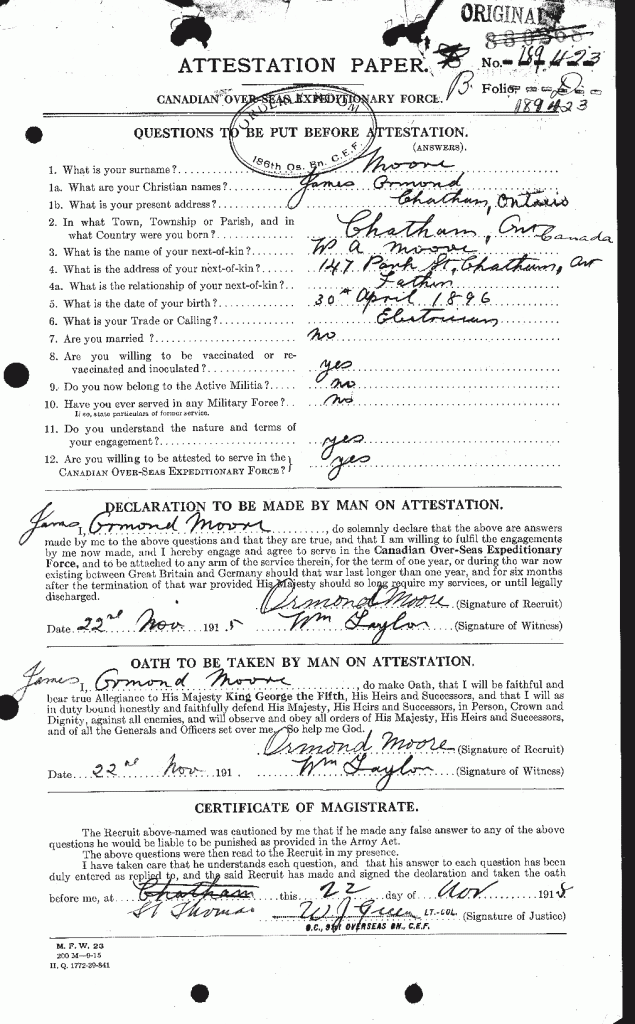 ORIGINAL
ATTESTATION PAPER.
No. 189423
B Folio. D
189423
CANADIAN OVER-SEAS EXPEDITIONARY FORCE.
186th Os. Bn. C.E.F.
QUESTIONS TO BE PUT BEFORE ATTESTATION.
(ANSWERS).
1. What is your surname? Moore
1a. What are your Christian names? James Ormond
1b. What is your present address? Chatham, Ontario
2. In what Town, Township or Parish, and in
what Country were you born? Chatham, Ont Canada
3. What is the name of your next-of-kin? W A Moore
4. What is the address of your next-of-kin? 147 Park St, Chatham, Ont
4a. What is the relationship of your next-of-kin? Father
5. What is the date of your birth? 30th April 1896
6. What is your Trade or Calling? Electrician
7. Are you married? no
8. Are you willing to be vaccinated or re-
vaccinated and inoculated? yes
9. Do you now belong to the Active Militia? no
10. Have you ever served in any Military Force? no
If so, state particulars of former service.
11. Do you understand the nature and terms of
your engagement? yes
12. Are you willing to be attested to serve in the
CANADIAN OVER-SEAS EXPEDITIONARY FORCE? yes
DECLARATION TO BE MADE BY MAN ON ATTESTATION.
James I, Ormond Moore, do solemnly declare that the above are answers
made by me to the above questions and that they are true, and that I am willing to fulfil the engagements
by me now made, and I hereby engage and agree to serve in the Canadian Over-Seas Expeditionary
Force, and to be attached to any arm of the service therein, for the term of one year, or during the war now
existing between Great Britain and Germany should that war last longer than one year, and for six months
after the termination of that war provided His Majesty should so long require my services, or until legally
discharged.
Ormond Moore (Signature of Recruit)
Date 22nd Nov 1915 Wm Taylor (Signature of Witness)
OATH TO BE TAKEN BY MAN ON ATTESTATION.
James I, Ormond Moore, do make Oath, that I will be faithful and
bear true Allegiance to His Majesty King George the Fifth, His Heirs and Successors, and that I will as
in duty bound honestly and faithfully defend His Majesty, His Heirs and Successors, in Person, Crown and
Dignity, against all enemies, and will observe and obey all orders of His Majesty, His Heirs and Successors,
and of all the Generals and Officers set over me. So help me God.
Ormond Moore (Signature of Recruit)
Date 22nd Nov 191 Wm Taylor (Signature of Witness)
CERTIFICATE OF MAGISTRATE.
The Recruit above-named was cautioned by me that if he made any false answer to any of the above
questions he would be liable to be punished as provided in the Army Act.
The above questions were then read to the Recruit in my presence.
I have taken care that he understands each question, and that his answer to each question has been
duly entered as replied to, and the said Recruit has made and signed the declaration and taken the oath
before me, at Chatham this 22 day of Nov 1915
St Thomas W J Green LT.-COL. (Signature of Justice)
O.C., 91st OVERSEAS BN., C.E.F.
M. F. W. 23
200 M—9-15
H. Q. 1772-39-841